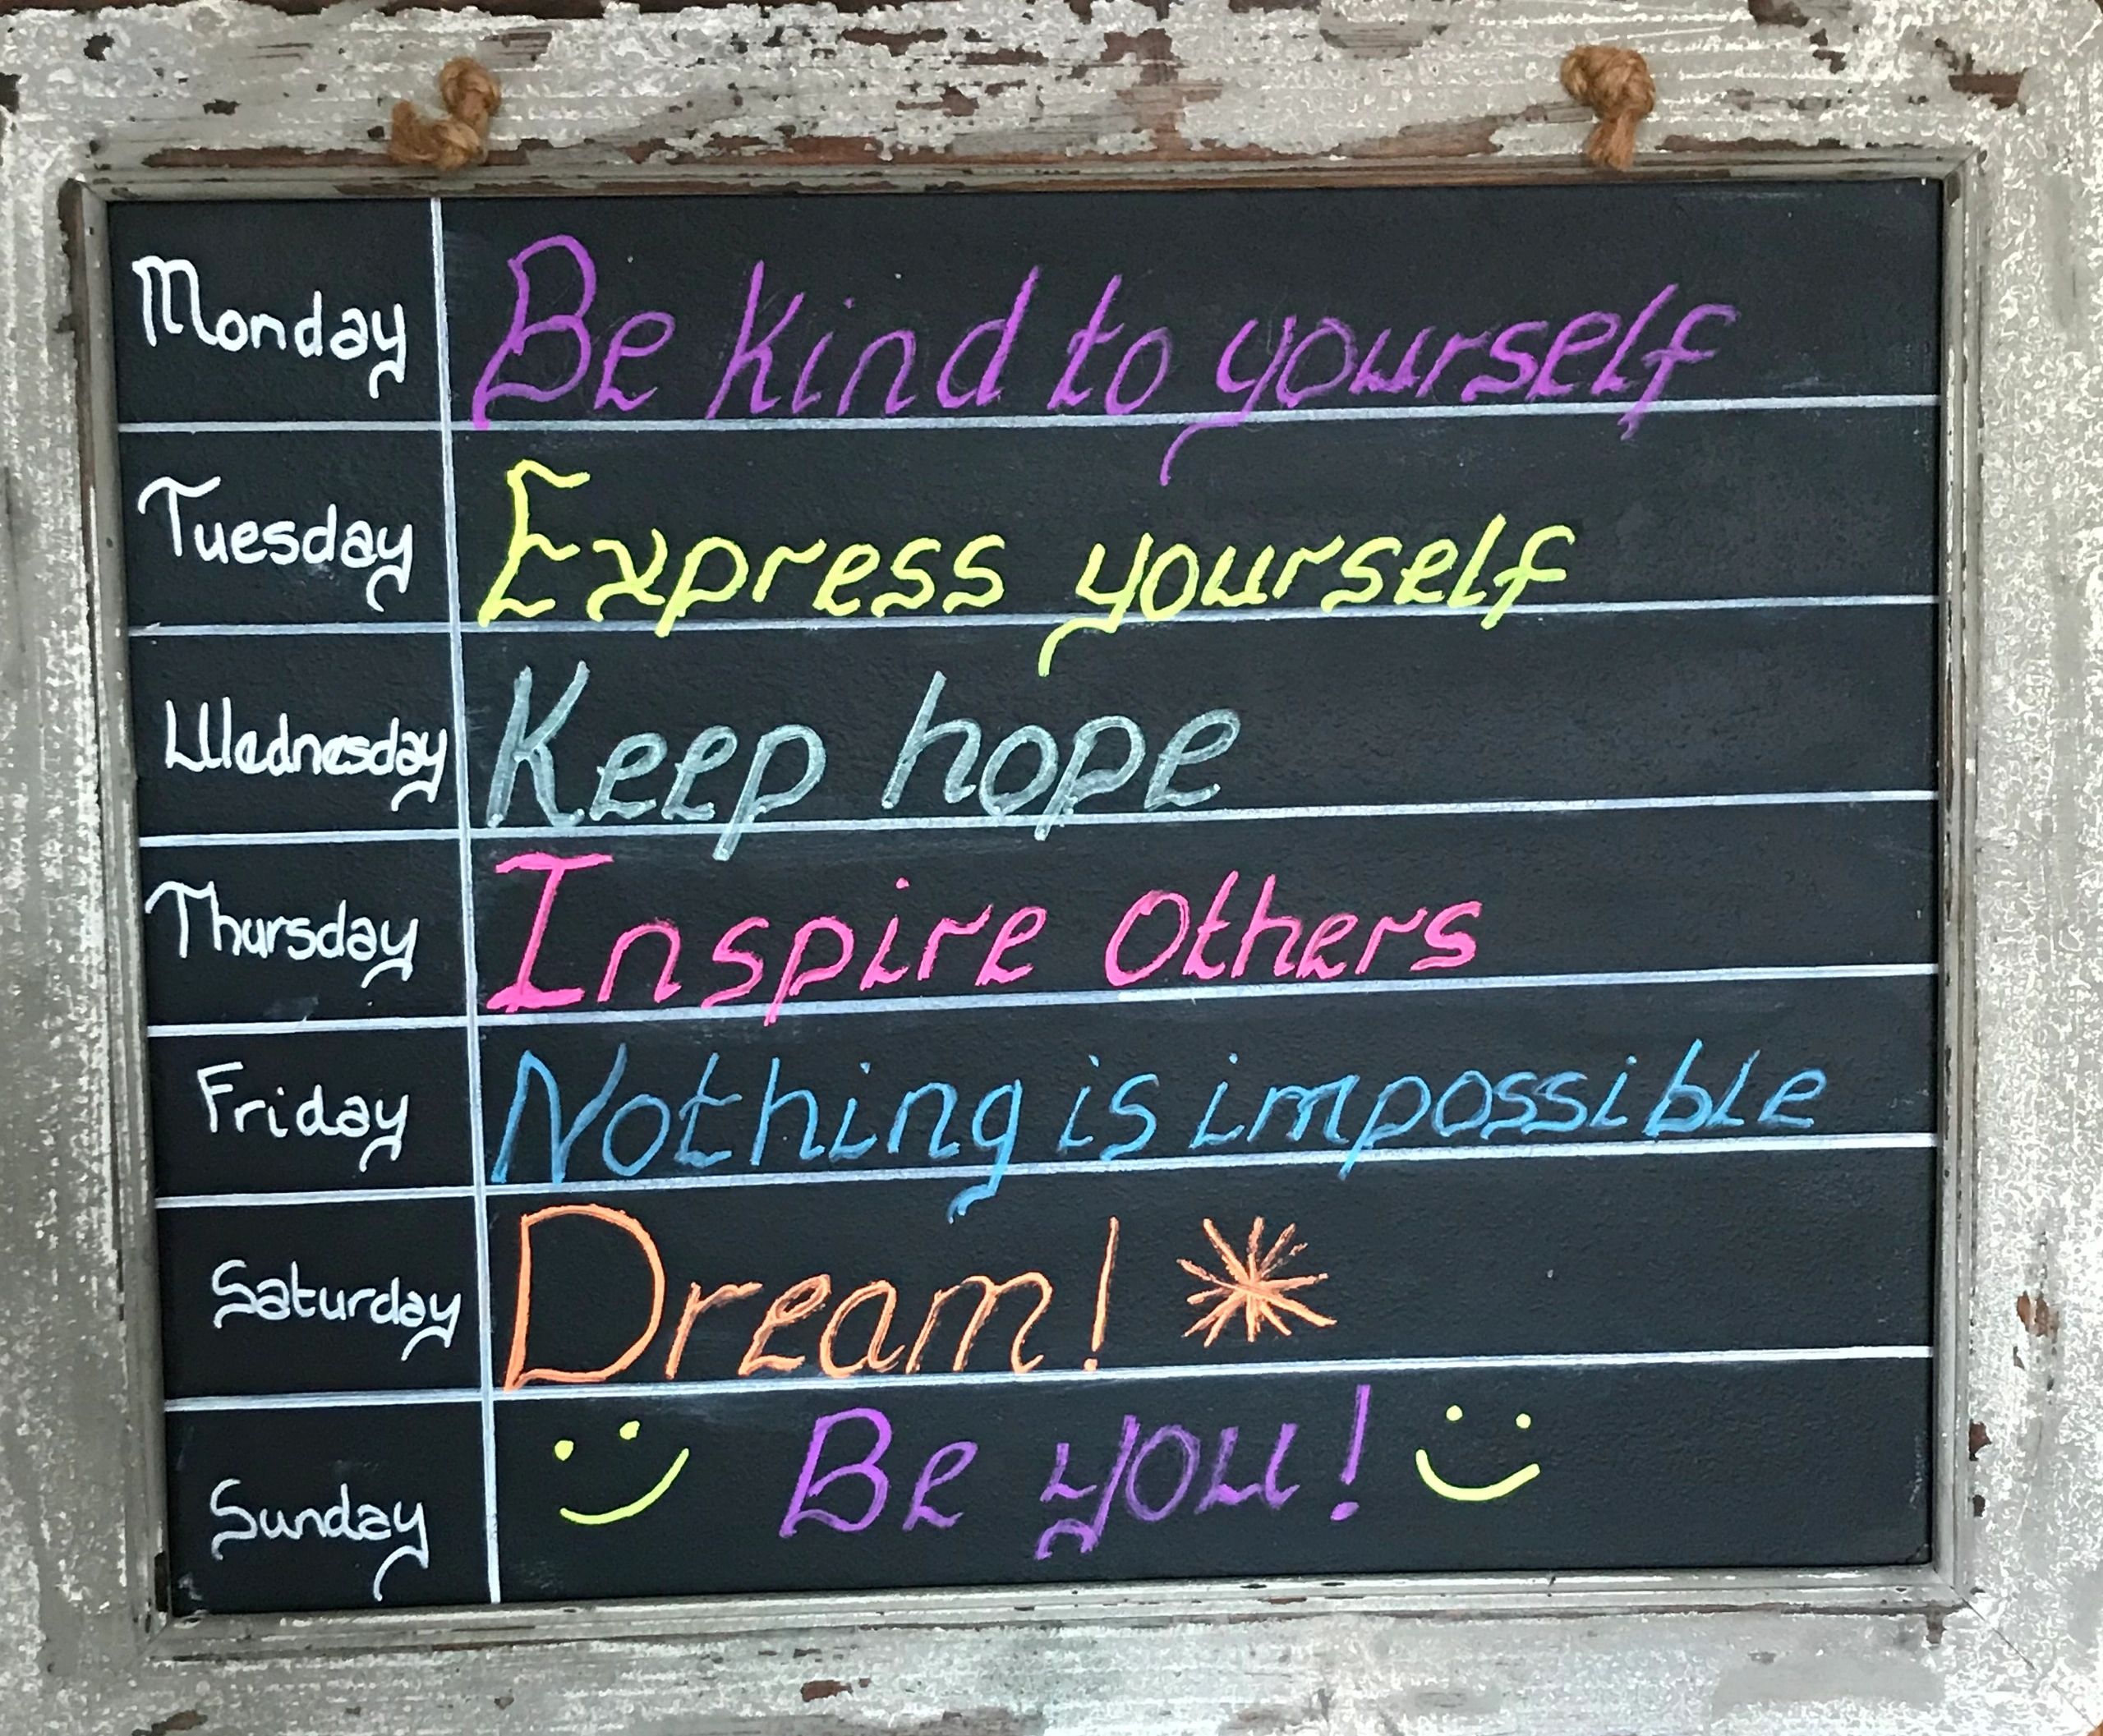 Monday Be kind to yourself
Tuesday Express yourself
Wednesday Keep hope
Thursday Inspire Others
Friday Nothing is impossible
Saturday Dream!
Sunday Be you!